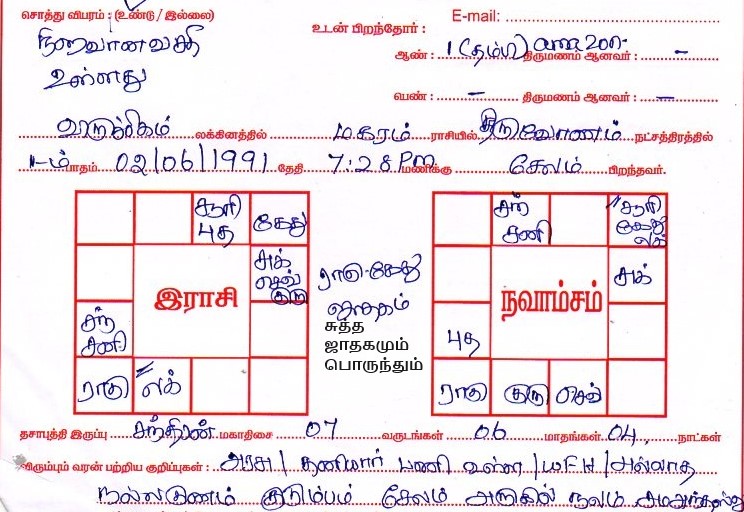 சொத்து விபரம் : (உண்டு / இல்லை)
E-mail:
நிறைவான வசதி
உள்ளது
உடன் பிறந்தோர் :
ஆண் : 1 (தம்பி) திருமணம் ஆனவர் : -
பெண் : - திருமணம் ஆனவர் : -
விருச்சிகம் லக்கினத்தில் மகரம் ராசியில் திருவோணம் நட்சத்திரத்தில்
1-ம் பாதம் 02/06/1991 தேதி 7:28 PM மணிக்கு சேலம் பிறந்தவர்.
சூரி
புத
கேது
சுக்
செவ்
குரு
இராசி
சந்
சனி
ராகு
லக்
ராகு-கேது
ஜாதகம்
சுத்த
ஜாதகமும்
பொருந்தும்
சந்
சனி
சூரி
கேது
லக்
சுக்
நவாம்சம்
புத
ராகு
குரு
செவ்
தசாபுத்தி இருப்பு சந்திரன் மகாதிசை 07 வருடங்கள் 06 மாதங்கள் 04 நாட்கள்
விரும்பும் வரன் பற்றிய குறிப்புகள் : அரசு / தனியார் பணி உள்ள / WFH / அல்லாத
நல்லகுணம் குடும்பம் சேலம் அருகில் நலம்